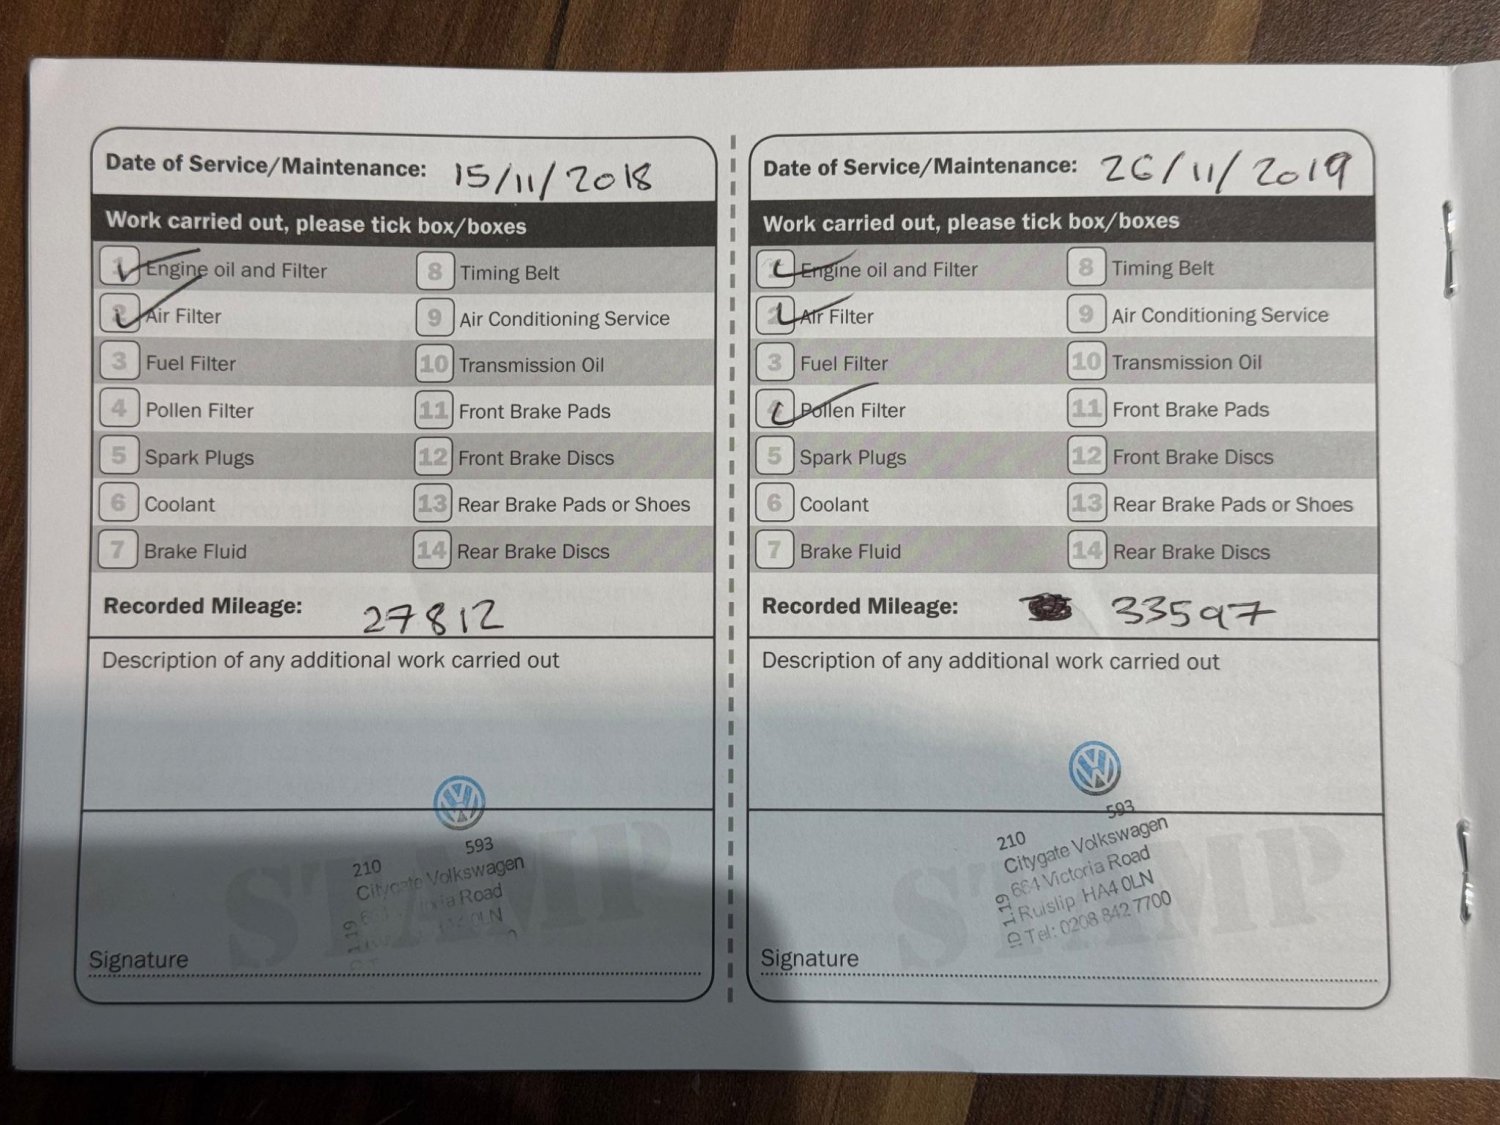 Date of Service/Maintenance: 15/11/2018
Work carried out, please tick box/boxes
1 Engine oil and Filter
2 Air Filter
3 Fuel Filter
4 Pollen Filter
5 Spark Plugs
6 Coolant
7 Brake Fluid
8 Timing Belt
9 Air Conditioning Service
10 Transmission Oil
11 Front Brake Pads
12 Front Brake Discs
13 Rear Brake Pads or Shoes
14 Rear Brake Discs
Recorded Mileage: 27812
Description of any additional work carried out
STAMP
210 593
Citygate Volkswagen
Road
0LN
1.19
Signature
Date of Service/Maintenance: 26/11/2019
Work carried out, please tick box/boxes
1 Engine oil and Filter
2 Air Filter
3 Fuel Filter
4 Pollen Filter
5 Spark Plugs
6 Coolant
7 Brake Fluid
8 Timing Belt
9 Air Conditioning Service
10 Transmission Oil
11 Front Brake Pads
12 Front Brake Discs
13 Rear Brake Pads or Shoes
14 Rear Brake Discs
Recorded Mileage: 33597
Description of any additional work carried out
STAMP
210 593
Citygate Volkswagen
664 Victoria Road
Ruislip HA4 0LN
Tel: 0208 842 7700
ID 1.19
Signature